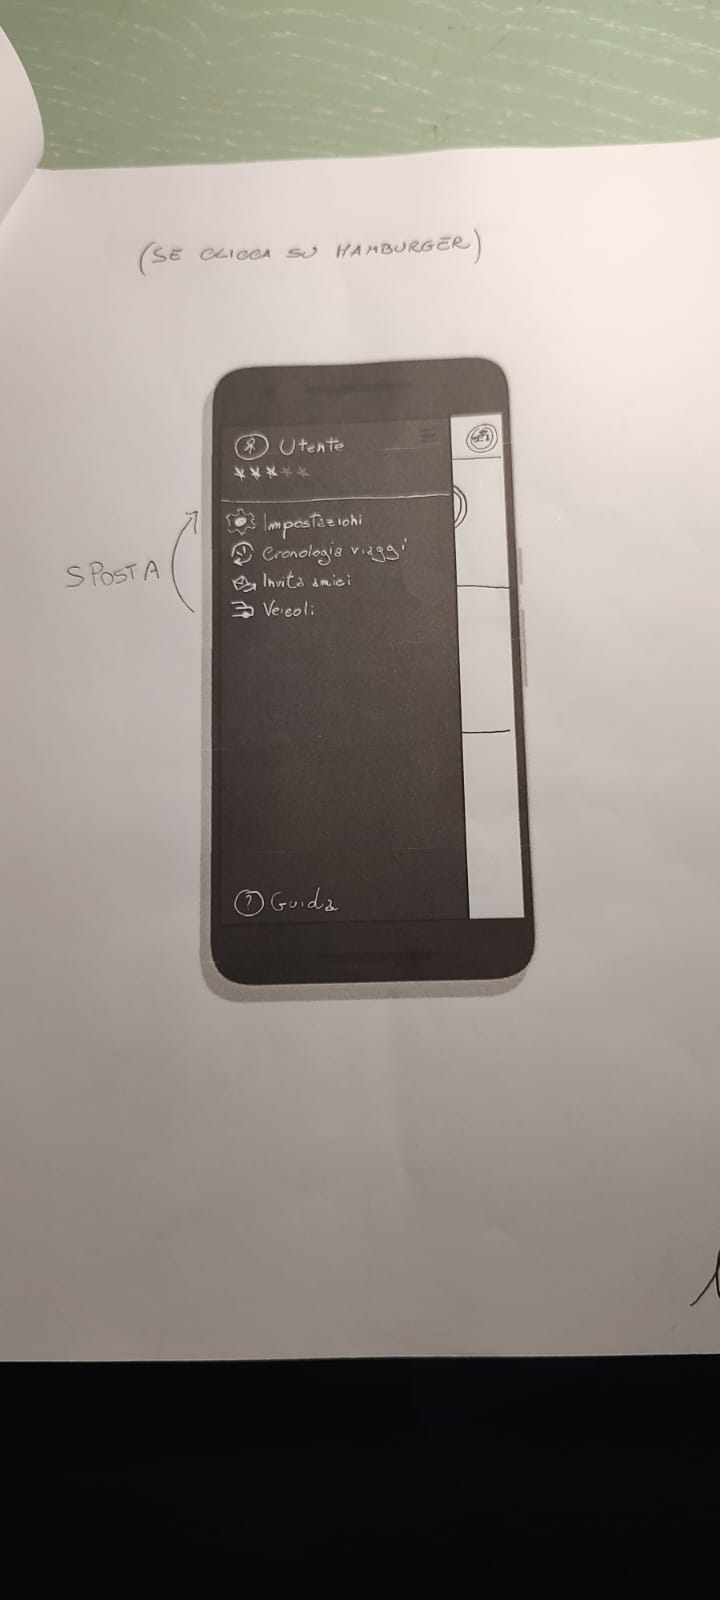 (SE CLICCA SU HAMBURGER)
Utente
Impostazioni
Cronologia viaggi
Invita amici
SPOSTA
Veicoli
? Guida